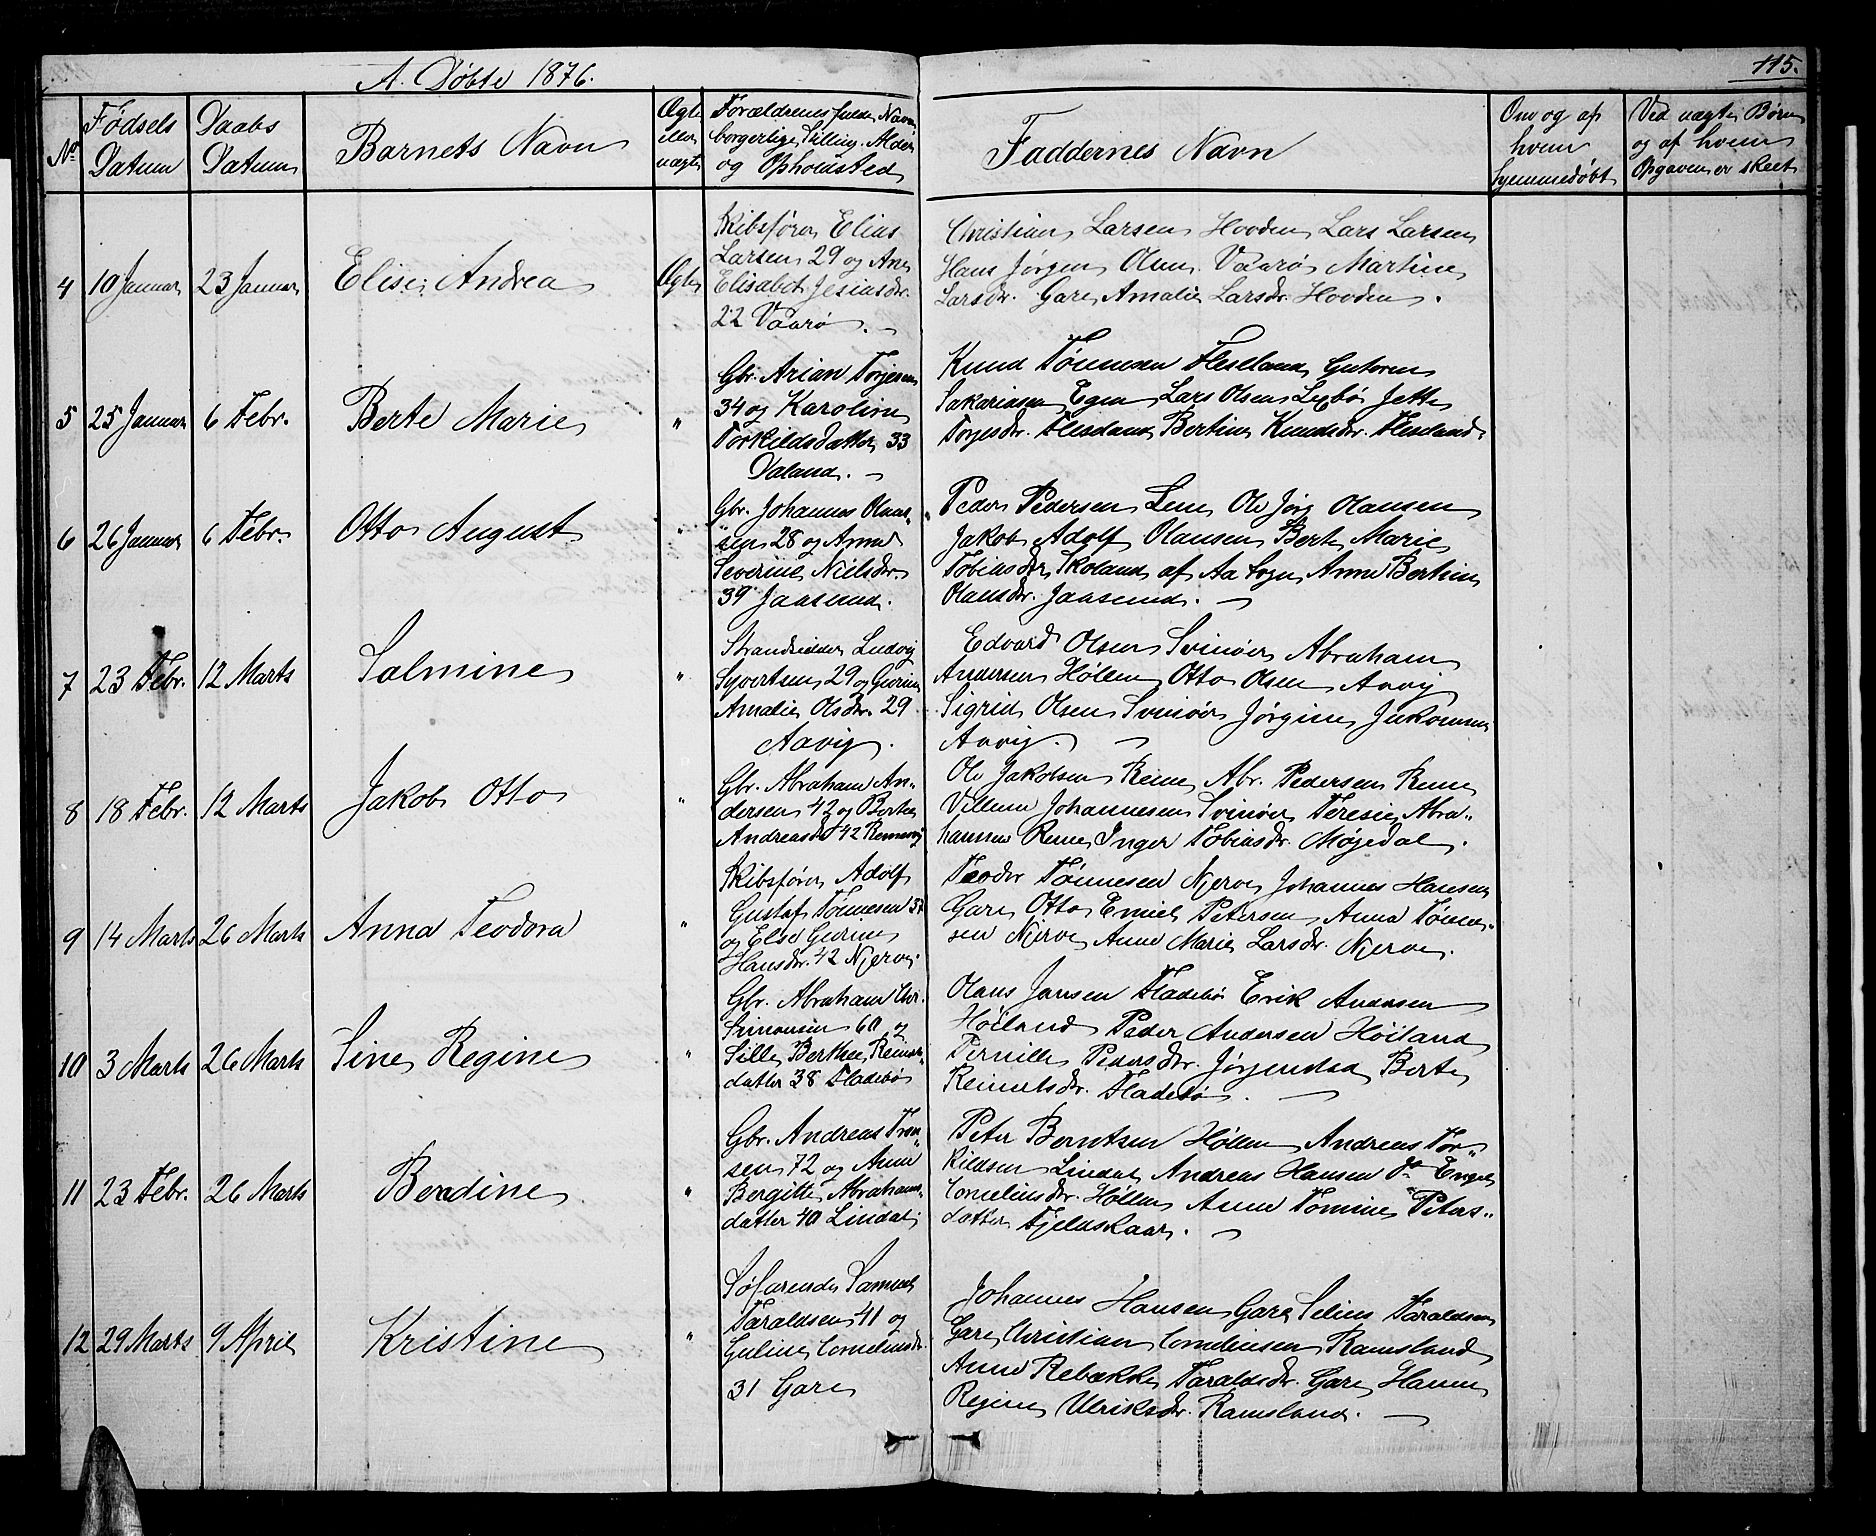 A. Døbte 1876.
115.
No
Fødsels Datum
Daabs Datum
Barnets Navn
Ægte eller uægte
Forældrenes fulde Navn
borgerlige Stilling. Alder
og Opholdsted
Faddernes Navn
Om og af hvem hjemmedøbt
Ved uægte Børn og af hvem Opgaven er skeet
4 10 Januar 23 Januar Elise Andrea Ægte
Skibsfører Elias
Larsen 29 og Ane
Elisabet Jesiasdr.
22 Vaarø. –
Christian Larsen Hovden Lars Larsen
Hans Jørgen Olsen Vaarø Martine
Larsdr. Gare Amalie Larsdr. Hovden.
5 25 Januar 6 Febr. Berte Marie "
Gbr. Arian Torjesen
34 og Karoline
Torkildsdatter 33
Daland. –
Knud Tönnesen Fleseland Gutorm
Sakariasen Egen Lars Olsen Lexbö Jette
Torjesdr. Flesland Bertine Knudsdr. Flesland.
6 26 Januar 6 Febr. Otto August "
Gbr. Johannes Olaus-
sen 28 og Anne
Severine Nielsdr.
39 Jaasund.
Peder Pedersen Lene Ole Jørg Olausen
Jakob Adolf Olausen Berte Marie
Tobiasdr. Skoland af Aa Sogn Anne Bertine
Olausdr. Jaasund. –
7 23 Febr. 12 Marts Salmine "
Strandsidder Ludvig
Syvertsen 29 og Gurine
Amalie Olsdr. 29
Aavig.
Edvard Olsen Svinøer Abraham
Andersen Höllen Otto Olsen Aavig
Sigrid Olsen Svinøer Jørgine Jakobsen
Aavig. –
8 18 Febr. 12 Marts Jakob Otto "
Gbr. Abraham An-
dersen 42 og Berte
Andreasdr 42 Remesvig
Ole Jakobsen Reme Abr. Pedersen Reme
Villum Johannesen Svinøer Teresie Abra-
hamsen Reme Inger Tobiasdr. Møgedal.
9 14 Marts 26 Marts Anna Teodora "
Skibsfører Adolf
Gustaf Tönnesen 37
og Else Gurine
Hansdr. 42 Njerve.
Teodor Tönnesen Njerve Johannes Hansen
Gare Otto Emil Petersen Anna Tönne-
sen Njerve Anne Marie Larsdr. Njerve.
10 3 Marts 26 Marts Sine Regine "
Gbr. Abraham Chr.
Simonsen 60 og
Sille Berthe Reiners-
datter 38 Fladebö
Olaus Jansen Fladebö Erik Andersen
Höiland Peder Andersen Höiland
Pernille Pedersdr. Jørgendal Berte
Reinertsdr. Fladebö. –
11 23 Febr. 26 Marts Berdine "
Gbr. Andreas Tron-
sen 72 og Anne
Bergitte Abrahams-
datter 40 Lindal
Peter Berntsen Höllen Andreas Tor-
kildsen Lindal Andreas Hansen Do Engel
Corneliusdr. Höllen Anne Tomine Peters-
datter Fjeldskaar. –
12 29 Marts 9 April Kristine "
Søfarende Samuel
Taraldsen 41 og
Guline Corneliusdr.
31 Gare
Johannes Hansen Gare Selius Taraldsen
Gare Christian Corneliusen Ramsland
Anne Rebekke Taraldsdr. Gare Hanne
Regine Ulriksdr. Ramsland. –